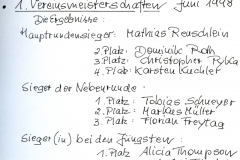 • 1. Vereinsmeisterschaften Juni 1998
Die Ergebnisse:
Hauptrundensieger: Mathias Renschlein
2. Platz: Dominik Roth
3. Platz: Christopher Ryba
4. Platz: Karsten Küchler
Sieger der Nebenrunde:
1. Platz: Tobias Schneyer
2. Platz: Markus Müller
3. Platz: Florian Freytag
Sieger(in) bei den Jüngsten:
1. Platz Alicia Thompson